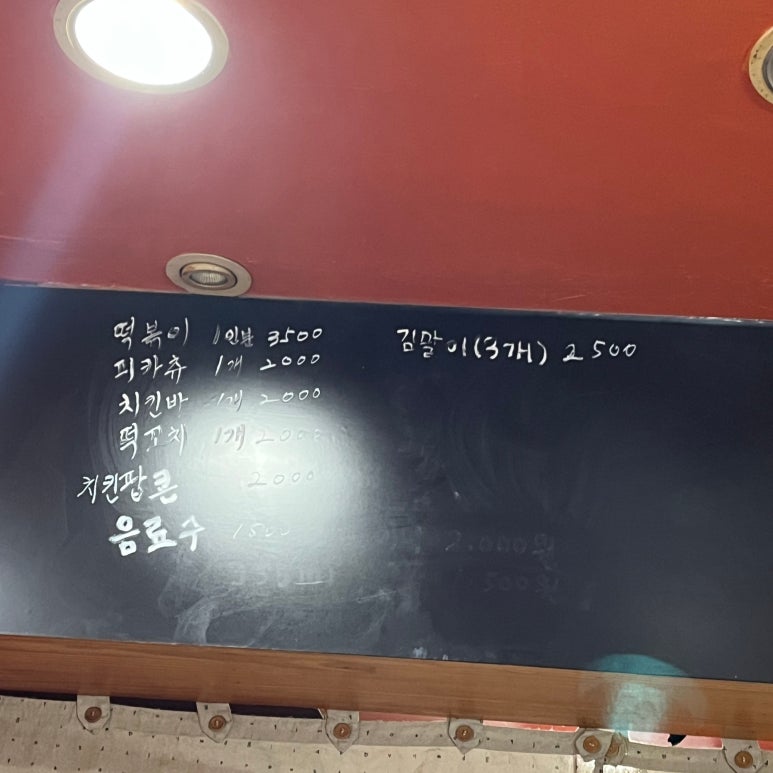 떡볶이 1인분 3500
피카츄 1개 2000
치킨바 1개 2000
떡꼬치 1개 2000
치킨팝콘 2000
음료수 1500
김말이(3개) 2500
2.000원
500원